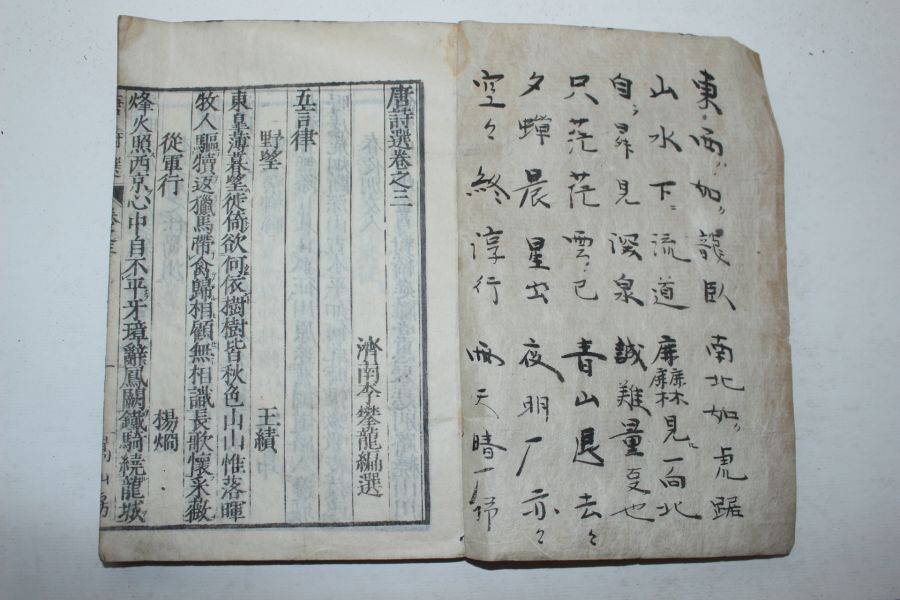 東西如龍臥 南北如虎踞
山水下流道 見一向北
自尋見深泉 誠難量
只茫茫雲已 青山退去々
夕蟬晨星出 夜明 亦々
空々終淳行 雨天晴
唐詩選卷之三
濟南李攀龍編選
五言律
野望 王績
東皐薄暮望徙倚欲何依樹樹皆秋色山山惟落暉
牧人驅犢返獵馬帶禽歸相顧無相識長歌懷采薇
從軍行 楊烱
烽火照西京心中自不平牙璋辭鳳闕鐵騎繞龍城